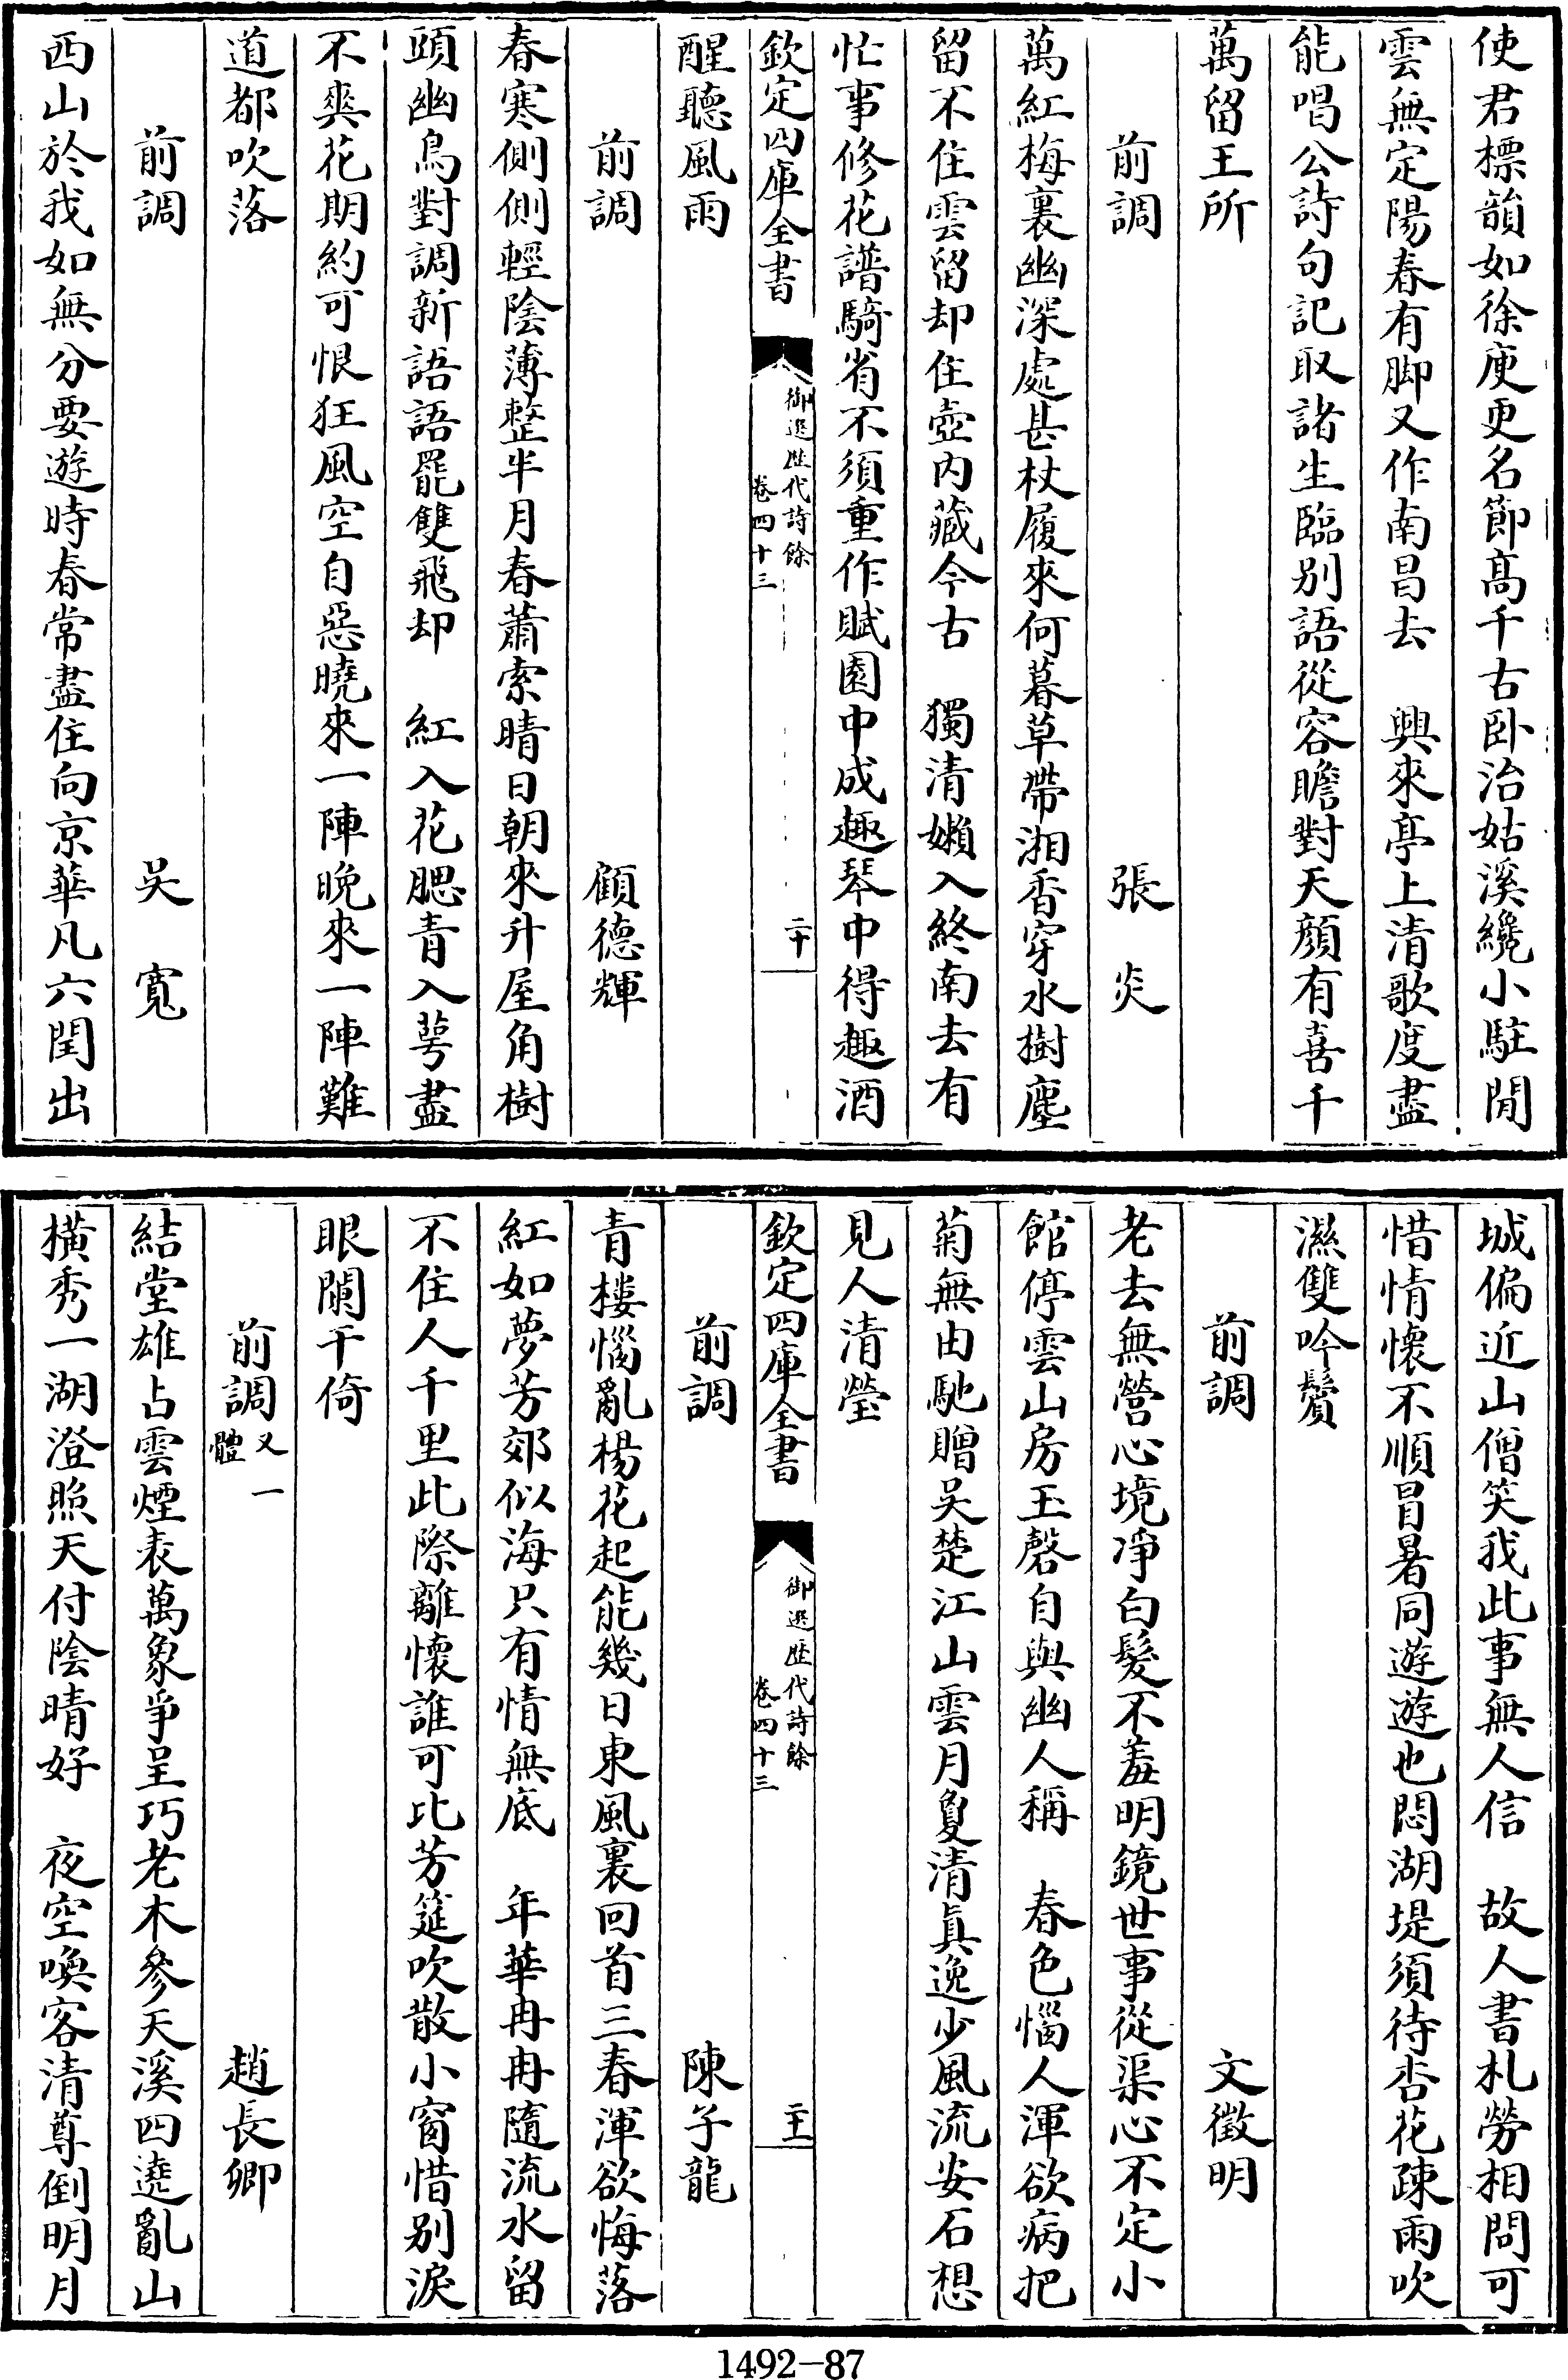 使君標韻如徐庾更名節髙千古卧治姑溪纔小駐閒
雲無定陽春有脚又作南昌去　興來亭上清歌度盡
能唱公詩句記取諸生臨别語從容瞻對天顔有喜千
萬留王所
前調　張炎
萬紅梅裏幽深處甚杖履來何暮草帶湘香穿水樹塵
留不住雲留却住壺内藏今古　獨清嬾入終南去有
忙事修花譜騎省不須重作賦園中成趣琴中得趣酒
欽定四庫全書　御選歴代詩餘　卷四十三　二十
醒聽風雨
前調　顧德輝
春寒側側輕陰薄整半月春蕭索晴日朝來升屋角樹
頭幽鳥對調新語語罷雙飛却　紅入花腮青入萼盡
不爽花期約可恨狂風空自惡曉來一陣晚來一陣難
道都吹落
前調　吳寬
西山於我如無分要遊時春常盡住向京華凡六閏出
城偏近山僧笑我此事無人信　故人書札勞相問可
惜情懷不順冒暑同遊遊也悶湖堤須待杏花疎雨吹
濕雙吟鬢
前調　文徵明
老去無營心境凈白髮不羞明鏡世事從渠心不定小
館停雲山房玉磬自與幽人稱　春色惱人渾欲病把
菊無由馳贈吳楚江山雲月夐清真逸少風流安石想
見人清瑩
欽定四庫全書　御選歴代詩餘　卷四十三　二十一
前調　陳子龍
青樓惱亂楊花起能幾日東風裏回首三春渾欲悔落
紅如夢芳郊似海只有情無底　年華冉冉隨流水留
不住人千里此際離懷誰可比芳筵吹散小窗惜别淚
眼闌干倚
前調又一體　趙長卿
結堂雄占雲煙表萬象爭呈巧老木參天溪四遶亂山
橫秀一湖澄照天付陰晴好　夜空喚客清尊倒明月
1492-87